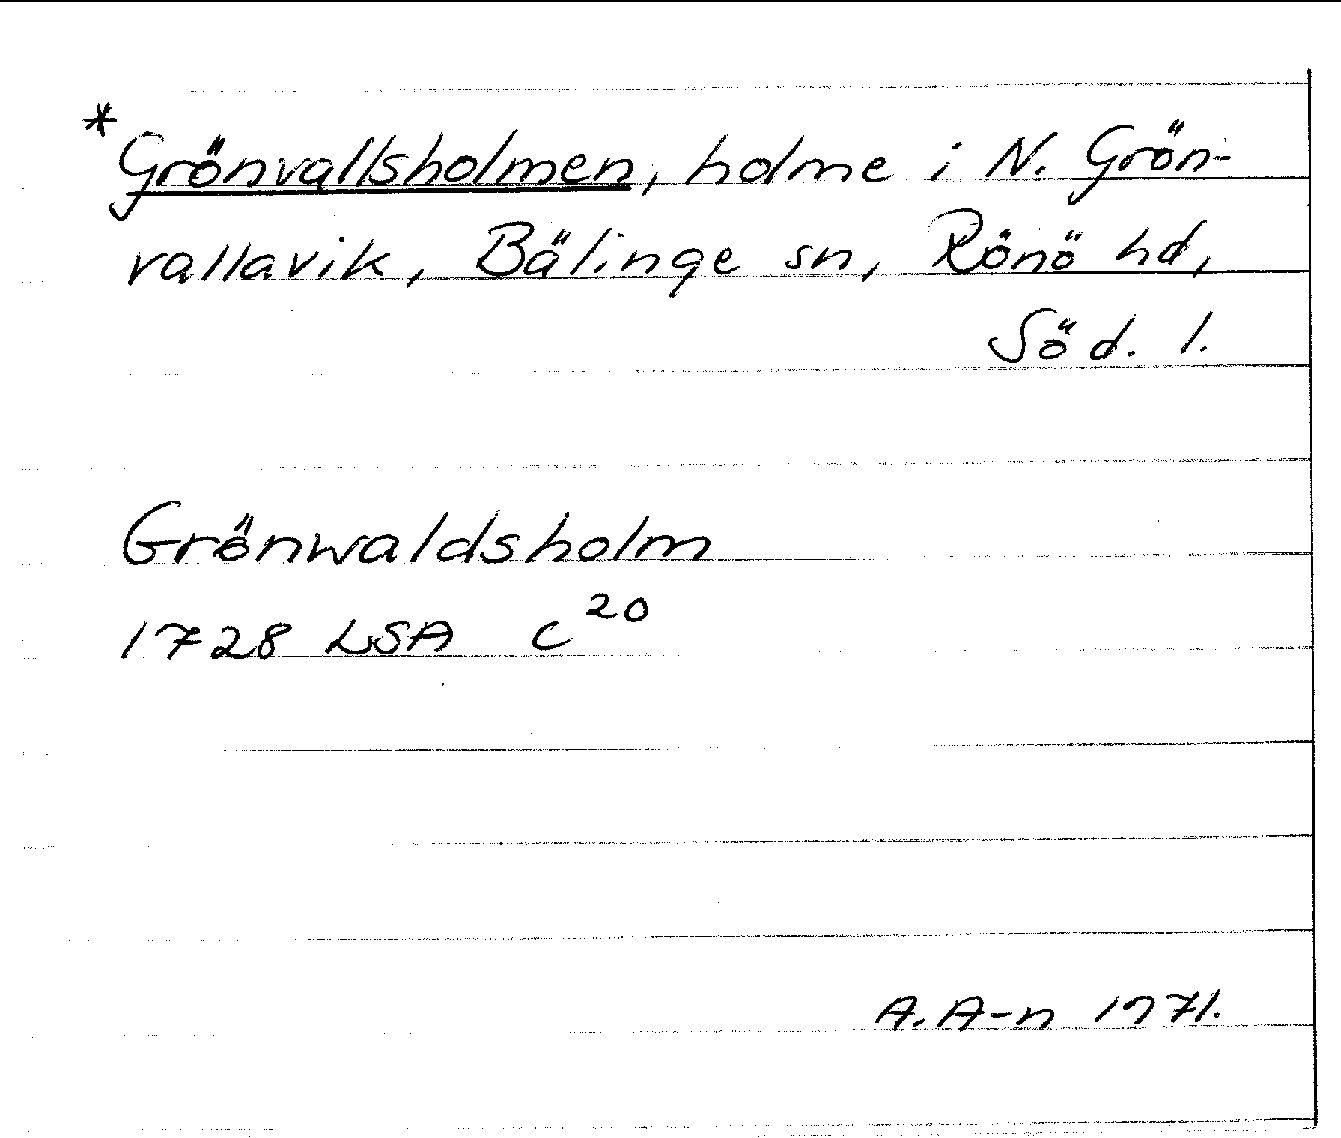 * Grönvallsholmen, holme i N. Grön-
vallavik, Bälinge sn, Rönö hd,
Söd. l.
Grönwaldsholm
1728 LSA C 20
A. A-n 1971.